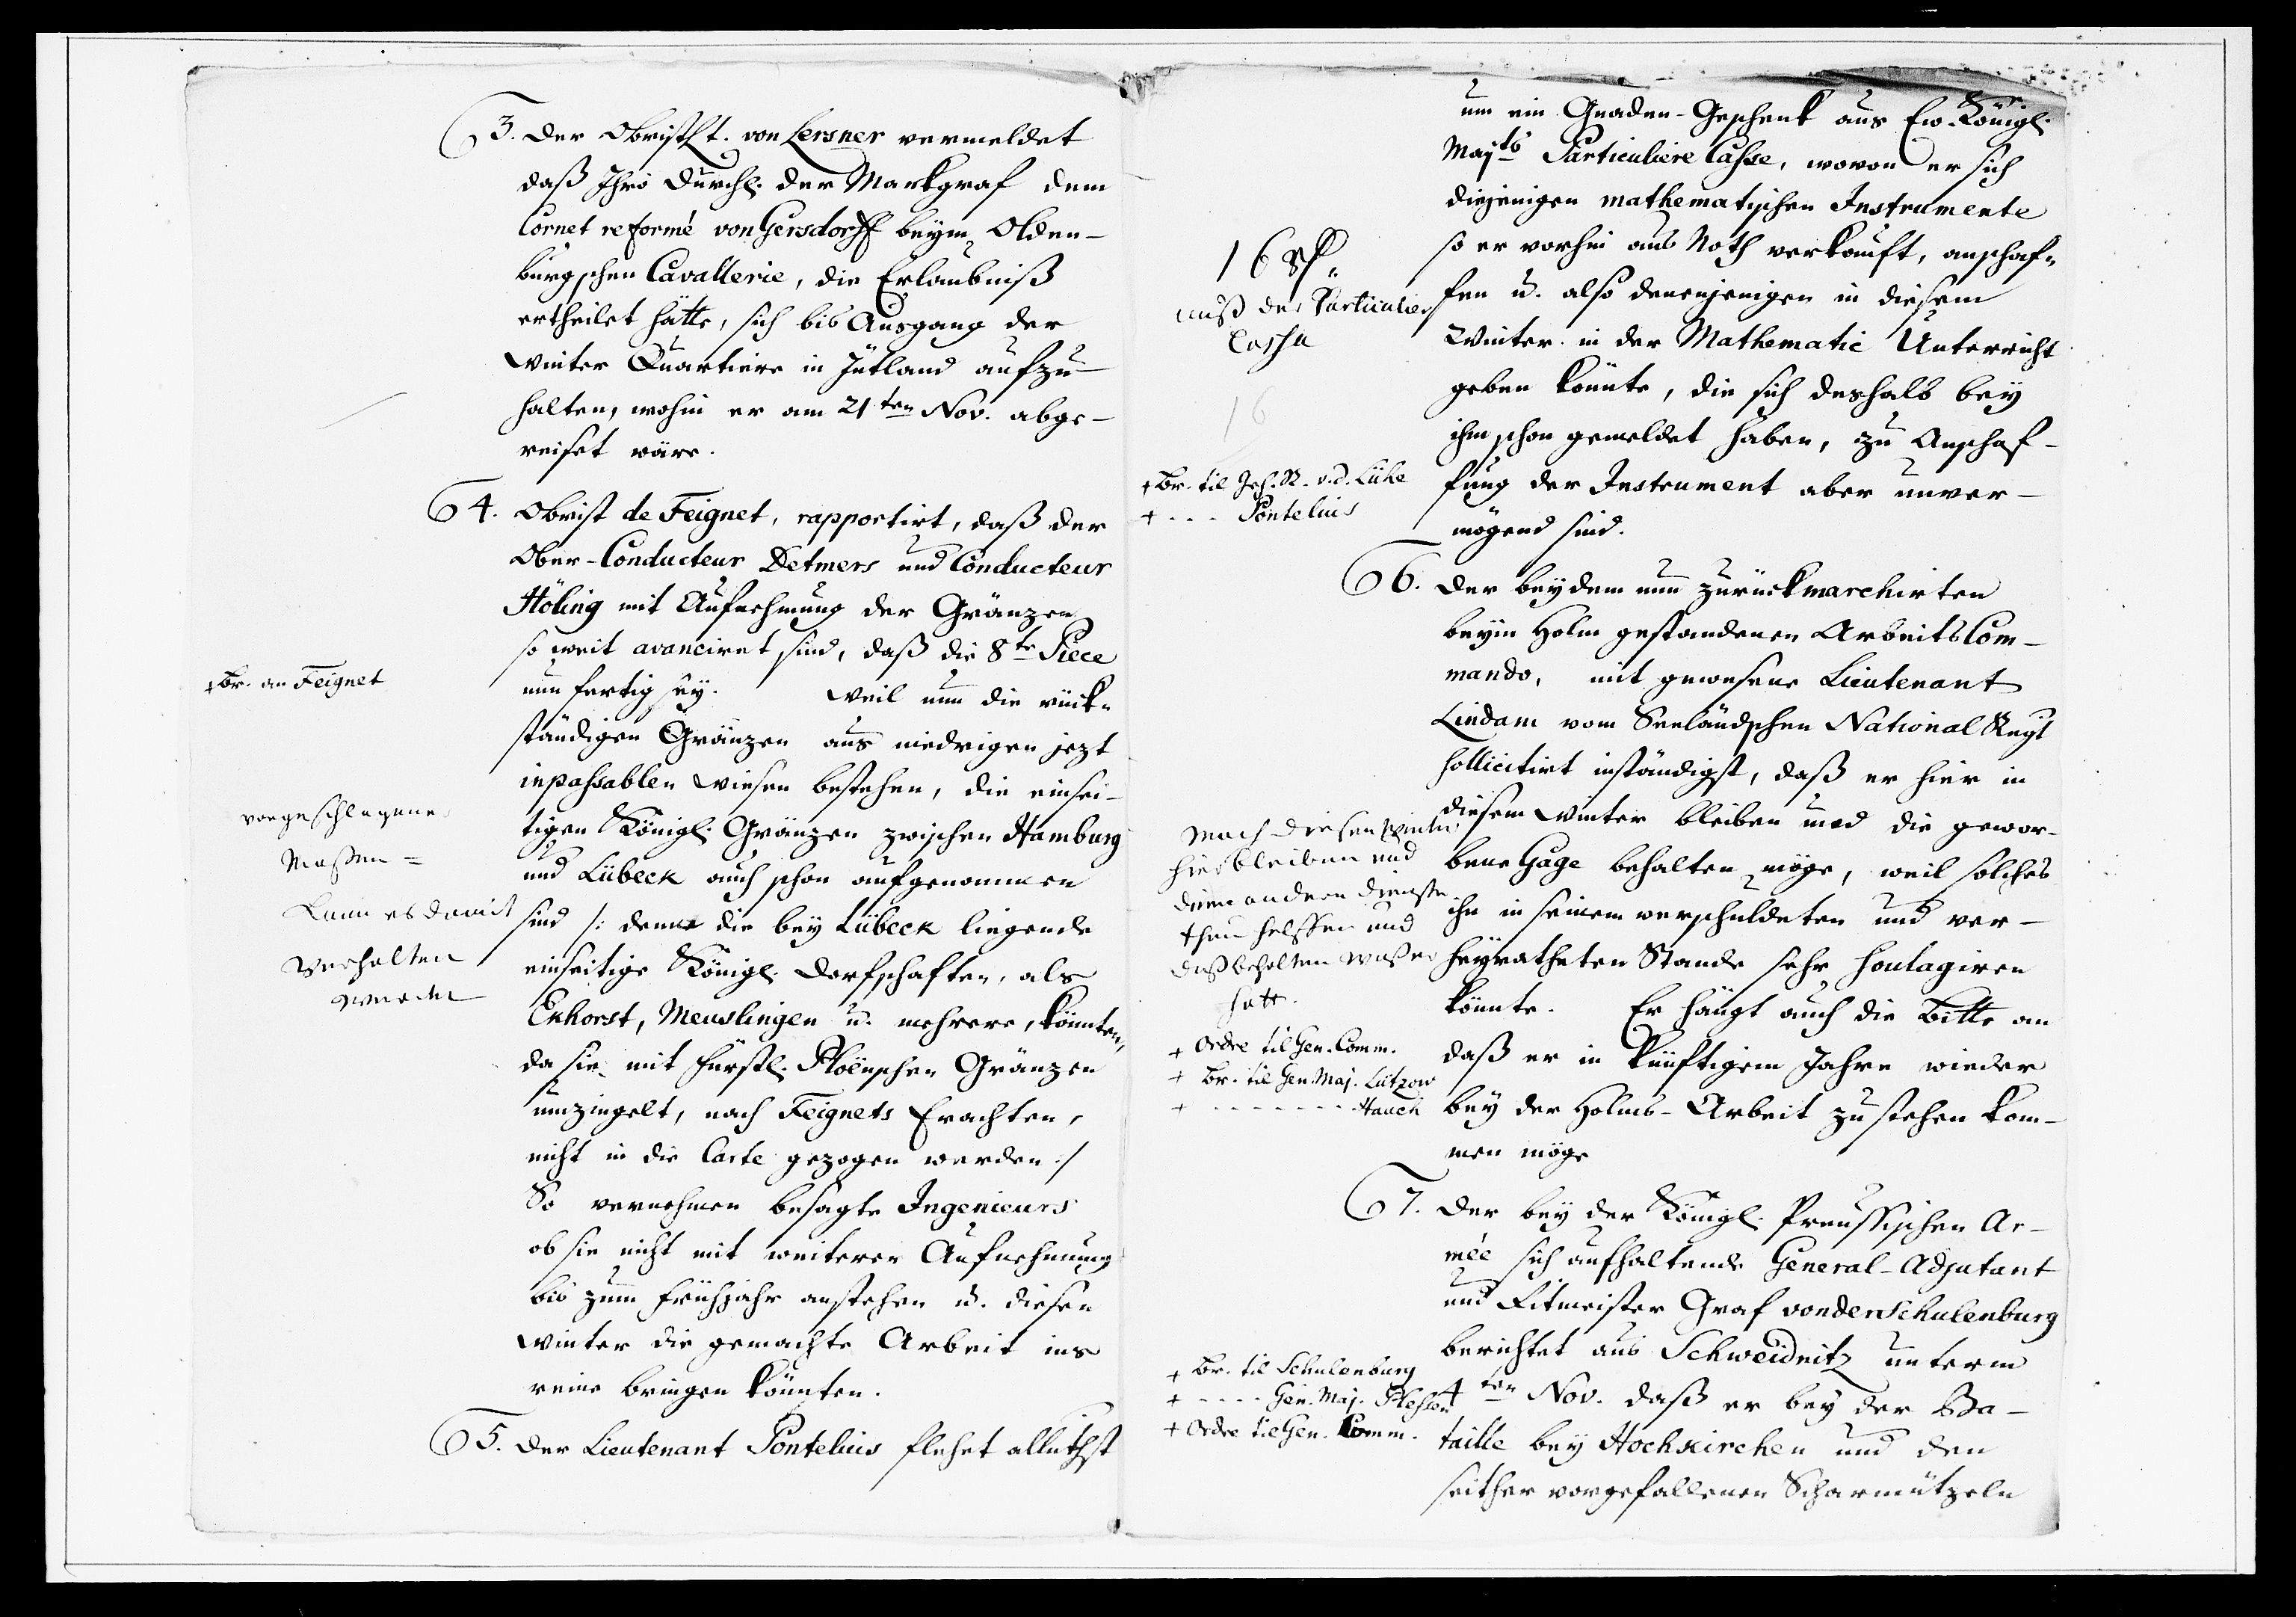 3. Der Obristlt. von Lersner vermeldet
daß Ihro Durchl. der Markgraf dem
Cornet reformé von Gersdorff beym Olden-
burgschen Cavallerie, die Erlaubniß
ertheilet hätte, sich bis Ausgang der
Winter Quartiere in Jütland aufzu-
halten, wohin er am 21ten Nov. abge-
reiset wäre.
4. Obrist de Feignet, rapportirt, daß der
Ober-Conducteur Detmers und Conducteur
Höling mit Aufnehmung der Gränzen
so weit avanciret sind, daß die 8te Piece
nun fertig sey. Weil nun die rück-
ständigen Gränzen aus niedrigen jezt
inpassablen Wiesen bestehen, die einsei-
tigen Königl. Gränzen zwischen Hamburg
und Lübeck auch schon aufgenommen
sind /: denn die bey Lübeck liegende
einseitige Königl. Dorfschaften, als
Ekhorst, Meuslingen u. mehrere, könnten,
da sie mit Fürstl. Ploenschen Gränzen
umzingelt, nach Feignets Erachten,
nicht in die Carte gezogen werden :/
So vernehmen besagte Ingenieurs
ob sie nicht mit weiterer Aufnehmung
bis zum Frühjahr anstehen u. diesen
Winter die gemachte Arbeit ins
reine bringen könnten.
5. Der Lieutenant Pontelius flehet alluthst
+ Br. an Feignet
vorgeschlagene
Maßen =
Kann es damit
verhalten
werden
um ein Gnaden-Geschenk aus Ew. Königl.
Majts Particuliere Casse, wovon er sich
diejenigen mathematischen Instrumente
so er vorhin aus Noth verkauft, anschaf-
fen u. also denenjenigen in diesem
Winter in der Mathematic Unterricht
geben könnte, die sich deshalb bey
ihm schon gemeldet haben, zu Anschaf-
fung der Instrument aber unver-
mögend sind.
6. Der bey dem nun zurückmarchirten
beym Holm gestandenen Arbeits Com-
mando, mit gewesene Lieutenant
Lindam vom Seeländschen National Regt
sollicitirt inständigst, daß er hier in
diesem Winter bleiben und die gewor-
bene Gage behalten möge, weil solches
ihn in seinem verschuldeten und ver-
heyratheten Stande sehr soulagiren
könnte. Er hängt auch die Bitte an
daß er in künftigem Jahre wieder
bey der Holms-Arbeit zu stehen kom-
men möge
7. Der bey der Königl. Preussischen Ar-
mée sich aufhaltende General-Adjutant
und Ritmeister Graf von der Schulenburg
berichtet aus Schweidnitz unterm
4ten Nov. daß er bey der Ba-
taille bey Hochkirchen und den
seither vorgefallenen Scharmützeln
16
auß der Particulier
Cassa
16
+ Br. til Geh. R. v. d. Lühe
+ - - - Pontelius
Mach diesen Winter
hier bleiben und
andern Dienste
thun helffen und
daß behalten waß er
hatt.
+ Ordre til Gen. Comm.
+ Br. til Gen. Maj. Lützow
+ - - - - - - - Hauch
+ Br. til Schulenburg
+ - - - - Gen. Maj. Plessen
+ Ordre til Gen. Comm.